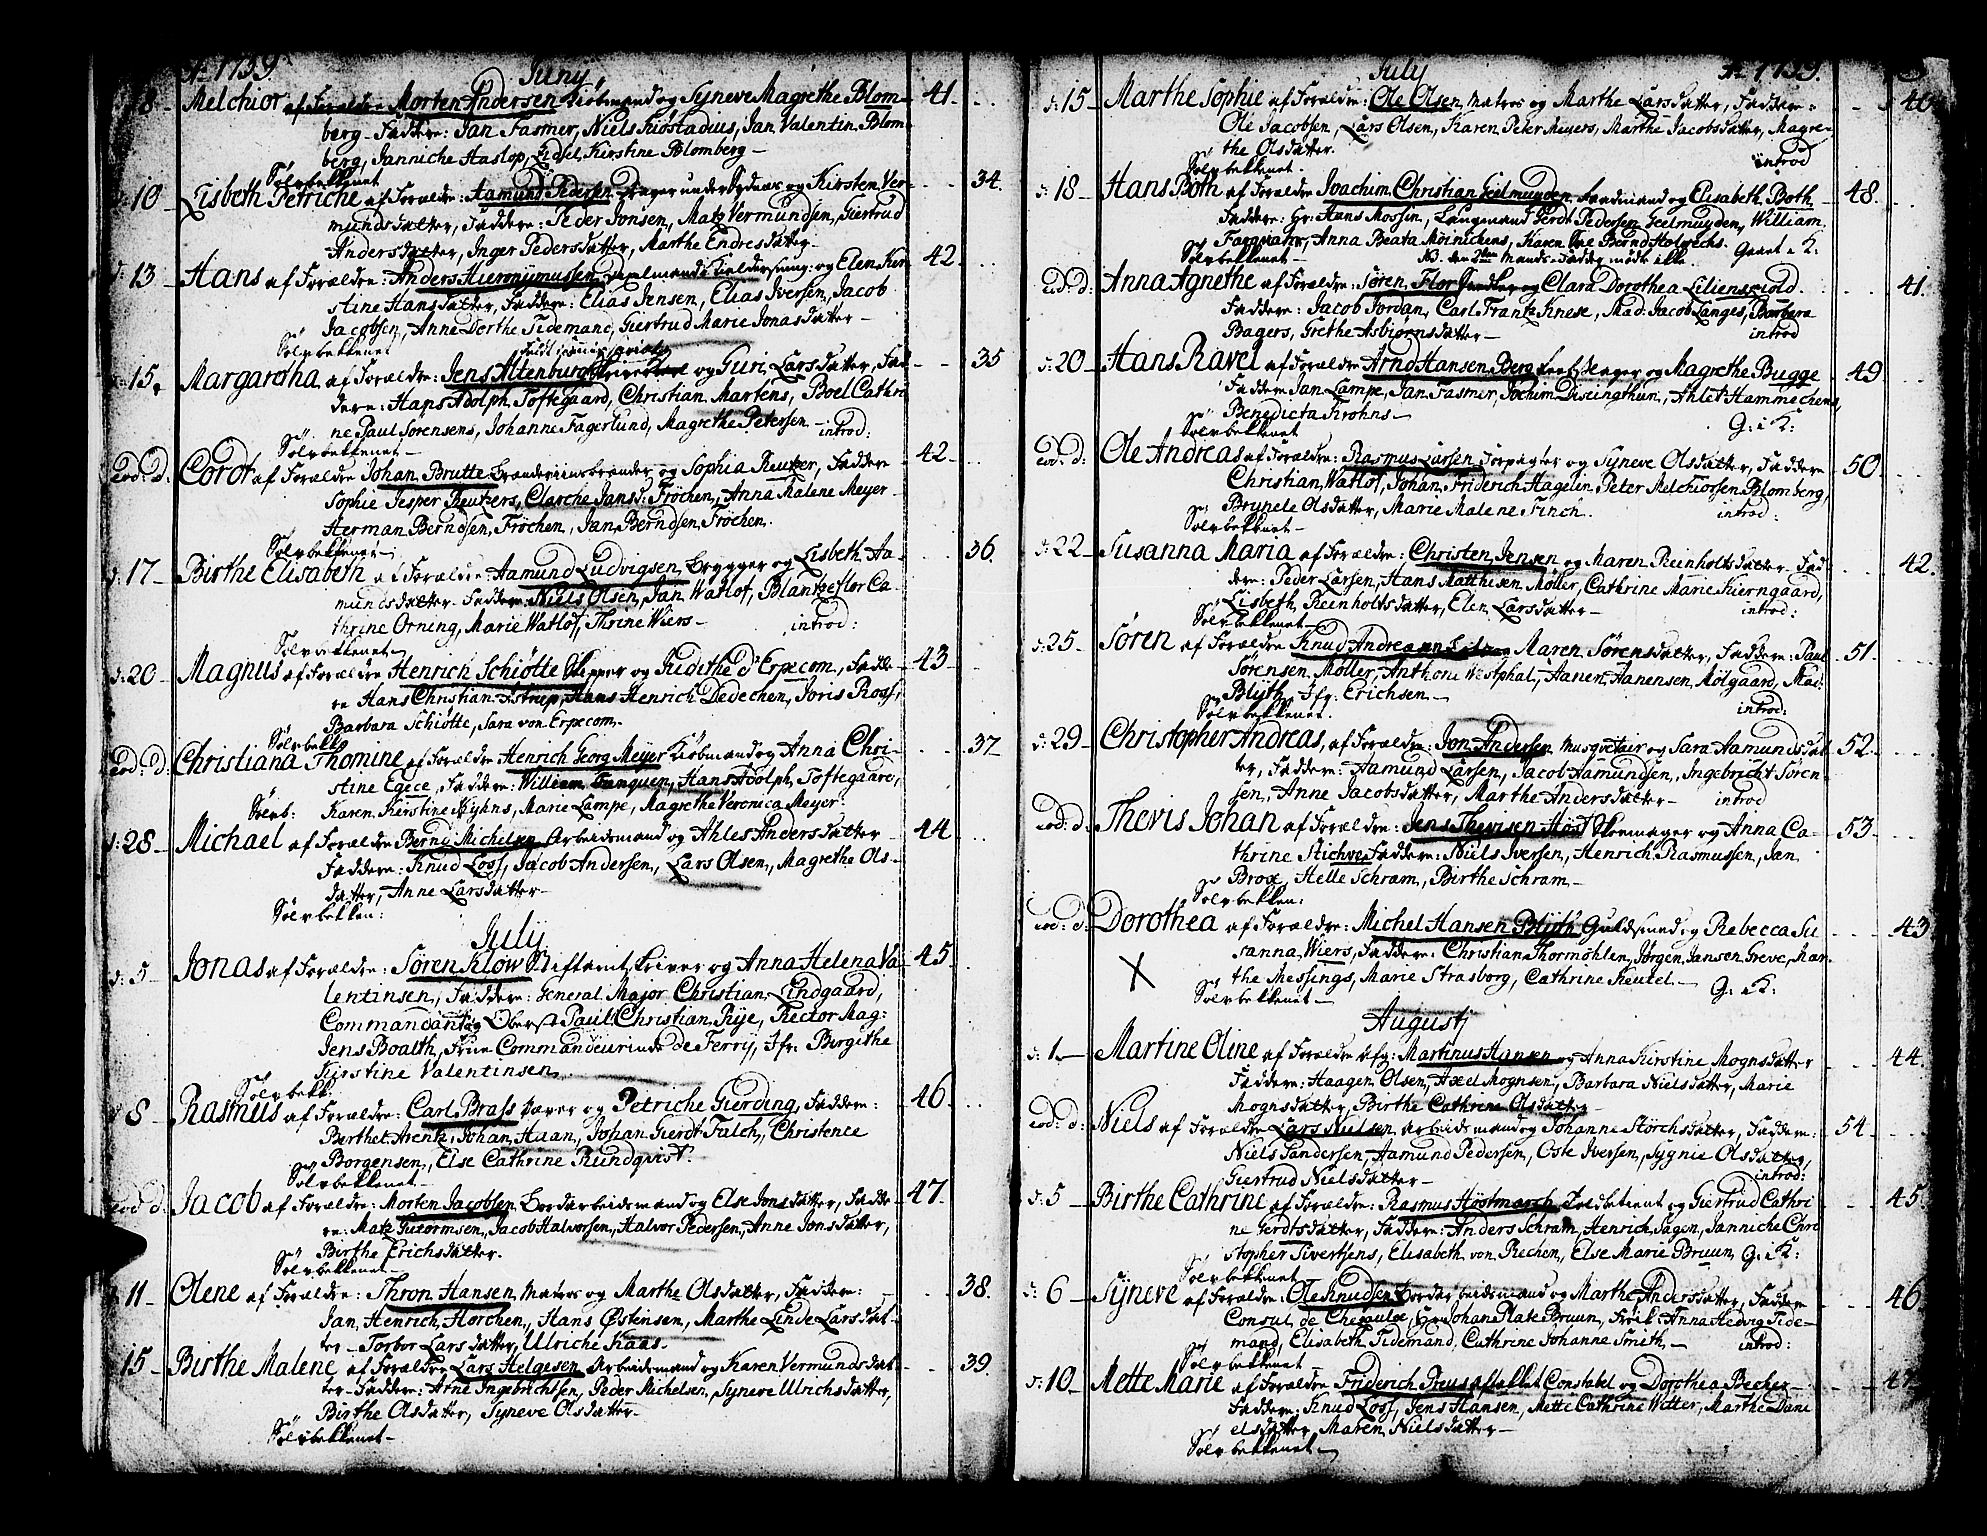 Ao 1739.
Juny
8 - Melchior af Forældre Morten Andersen Kiøbmand og Syneve Magrethe Blom- 41.
berg - Faddere: Jan Fasmer, Niels, Jan Valentin Blom-
berg, Janniche Haslop, Kirstine Blomberg -
Sølvbekkenet
10 - Lisbeth Petriche af Forældre: Aamund Pedersen og Kirsten Ver- 34.
mundsdatter, Faddere: Peder Jonsen, Matz Vermundsen, Giertrud
Andersdatter, Inger Pedersdatter, Marthe Endresdatter -
d: 13 - Hans af Forældre: Anders Hieronymussen og Elen Kir- 42.
stine Hansdatter, Faddere: Elias Jensen, Elias Iversen, Jacob
Jacobsen, Anne Dorthe Tidemand, Giertrud Marie Jonasdatter -
Sølvbekkenet
d: 15. Margaretha af Forældre: Jens Altenburg og Guri Larsdatter, Fad- 35
dere: Hans Adolph Toftegaard, Christian Martens, Boel Cathri-
ne Paul Sørensens, Johanne Fagerlund, Magrethe Petersen - introd:
Sølvbekkenet -
Eod: d: Cordt af Forældre Johan Brutte og Sophia Reutzer, Faddere 42.
Sophie Jesper Reutzers, Clarche Jansd: Frøchen, Anna Malene Meyer
Herman Berndsen Frøchen, Jan Berndsen Frøchen.
Sølvbekkenet -
d: 17 - Birthe Elisabeth af Forældre: Aamund Ludvigsen Brygger og Lisbeth Aa- 36.
mundsdatter - Faddere Niels Olsen, Jan Watlof, Blantzeflor Ca-
thrine Orning, Marie Watlof, Thrine Wiers - introd:
Sølvbekkenet -
d: 20 - Magnus af Forældre Henrich Schiøtte Skipper og Judithe d'Erpecom, Fadde- 43
re Hans Christian Hans Henrich Dedechen, Joris Ross,
Barbara Schiøtte, Sara von Erpecom.
Sølvbekk:
Eod: d: Christiana Thomine af Forældre Henrich Georg Meyer Kiøbmand og Anna Chri- 37
stine Egece, Faddere: William Hans Adolph Toftegaard,
Karen Kierstine Kyhns, Marie Lampe, Magrethe Veronica Meyer.
d: 28 - Michael af Forældre Bernt Michelsen Arbeidsmand og Ahles Andersdatter 44
Faddere: Knud Loss, Jacob Andersen, Lars Olsen, Magrethe Ols-
datter, Anne Larsdatter -
Sølvbekken:
July
d: 5 - Jonas af Forældre: Søren Klow Stiftamt Skriver og Anna Helena Va- 45
lentinsen, Faddere: General Major Christian Lindgaard,
Commandant og Oberst Paul Christian Rye, Rector Mag:
Jens Boalth, Frue Commandeurinde de Ferry, Jfr: Birgithe
Kirstine Valentinsen.
Sølvbekk:
8 - Rasmus af Forældre: Carl Brass Farver og Petriche Gierding, Faddere: 46
Berthel Arentz, Johan Haan, Johan Gierdt Falch, Christence
Borgensen, Else Cathrine Rundqvist.
Sølvbekkenet -
Eod: d: Jacob af Forældre: Morten Jacobsen Bordarbeidsmand og Else Jonsdatter, Fadde- 47.
re: Matz Guttormsen, Jacob Halvorsen, Halvor Pedersen, Anne Jonsdatter,
Birthe Erichsdatter.
Sølvbekkenet -
11 - Olene af Forældre: Thron Hansen Matros og Marthe Olsdatter, Faddere: 38.
Jan Henrich Horchen, Hans Østensen, Marthe Linde Larsdat-
ter - Torbor Larsdatter, Ulriche Kaas.
15 - Birthe Malene af Forældre Lars Helgesen Arbeidsmand og Karen Vermundsdat- 39.
ter - Faddere: Arne Ingebrichtsen, Peder Michelsen, Syneve Ulrichsdatter,
Birthe Olsdatter, Syneve Olsdatter -
Sølvbekkenet -
July
Ao 1739.
d: 15 - Marthe Sophie af Forældre: Ole Olsen, Matros og Marthe Larsdatter, Faddere: 40
Ole Jacobsen, Lars Olsen, Karen Peter Meyers, Marthe Jacobsdatter, Magre-
the Olsdatter. introd
Sølvbekkenet -
d: 18 - Hans Both af Forældre Joachim Christian Geelmuyden Landmand og Elisabeth Both 48.
Faddere: Hr: Hans Mossin, Laugmand Gerdt Pedersen Geelmuyden, William
Farqvahr, Anna Beata Meinichens, Karen Bernd Holwechs. G. i K:
Sølvbekkenet - NB den Mands-Fadder mødte ikke
Eod: d: Anna Agnethe af Forældre: Søren Flor og Clara Dorothea Lilienskiold 41.
Faddere: Jacob Jordan, Carl Frantz Knese, Mad: Jacob Langes, Barbara
Bagers, Grethe Asbiørnsdatter - introd
d: 20 - Hans Ravel af Forældre Arnd Hansen Berg og Magrethe Bugge 49
Faddere Jan Lampe, Jan Fasmer, Jochim Disingthun, Ahlet Hammechens,
Benedicta Krohns - G: i K:
Sølvbekkenet
Eod: d: Ole Andreas af Forældre: Rasmus Larsen Forpagter og Syneve Olsdatter, Faddere 50.
Christian Watlof, Johan Friderich Hagelin, Peter Melchiorsen Blomberg,
Brynele Olsdatter, Marie Malene Finch. introd:
Sølvbekkenet -
d: 22 - Susanna Maria af Forældre: Christen Jensen og Maren Reinholtsdatter - Fad- 42.
dere: Peder Larsen, Hans Matthisen Møller, Cathrine Marie Kierngaard,
Lisbeth Reinholtsdatter, Elen Larsdatter - introd:
Sølvbekkenet -
d: 25 - Søren af Forældre Knud Maren Sørensdatter, Faddere: Paul 51.
Sørensen Møller, Anthoni Westphal, Aanen Aanensen Mølgaard, Mad:
Blyth, Jfr. Erichsen - introd:
Sølvbekkenet.
d: 29 - Christopher Andreas, af Forældre: Jon Andersen Musqvetair og Sara Aamundsdat- 52.
ter, Faddere: Aamund Larsen, Jacob Aamundsen, Ingebricht Søren-
sen, Anne Jacobsdatter, Marthe Andersdatter - introd
Eod: d: Thevis Johan af Forældre: Jens Thevisen Høst Skoemager og Anna Ca- 53
thrine Stichvee Faddere: Niels Iversen, Henrich Rasmussen, Jan
Brose, Helle Schram, Birthe Schram -
Sølvbekken:
Eod: d: Dorothea af Forældre: Michel Hansen Blyth Guldsmed og Rebecca Su- 43
sanna Wiers, Faddere: Christian Thormøhlen, Jørgen Jansen Greve, Mar-
the Messings, Marie Strasborg, Cathrine Keutel - G: i K:
X Sølvbekkenet -
Augusti
d: 1. - Martine Oline af Forældre Martinus Hansen og Anna Kirstine Mognsdatter 44.
Faddere: Haagen Olsen, Axel Mognsen, Barbara Nielsdatter, Marie
Mognsdatter, Birthe Cathrine Olsdatter -
Eod: d: Niels af Forældre Lars Nielsen Arbeidsmand og Johanne Størchsdatter, Faddere: 54
Niels Sandersen, Aamund Pedersen, Oste Iversen, Sygnie Olsdatter,
Giertrud Nielsdatter - introd:
d: 5 - Birthe Cathrine af Forældre: Rasmus Høstmarch og Giertrud Cathri- 45
ne Gerdtsdatter, Faddere: Anders Schram, Henrich Sagen, Janniche Chri-
stopher Sivertsens, Elisabeth von Rechen, Else Marie Bruun G: i K:
Sølvbekkenet
d: 6 - Syneve af Forældre: Ole Knudsen Bordarbeidsmand og Marthe Andersdatter, Faddere 46.
Consul de Chezaulx, Hr: Johan Plate Bruun, Frøik: Anna Hedvig Tide-
mand, Elisabeth Tidemand, Cathrine Johanne Smith - introd:
Sølvbekkenet -
d: 10 - Mette Marie af Forældre Friderich Preus aftakket Constabel og Dorothea Becher - 47.
Faddere: Knud Loss, Jens Hansen, Mette Cathrine Witter, Marthe Dani-
elsdatter, Maren Nielsdatter -
Sølvbekkenet -